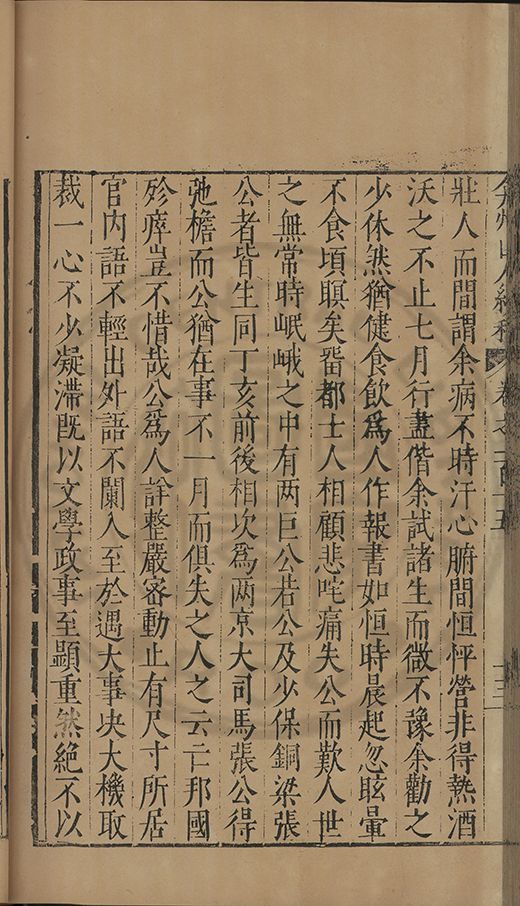 弇州山人續稿 卷之一百十五 十三
壯人而間謂余病不時汗心腑間恒怦營非得熱酒
沃之不止七月行盡偕余試諸生而微不豫余勸之
少休然猶健食飲爲人作報書如恒時晨起忽眩暈
不食頃瞑矣畱都士人相顧悲咤痛失公而歎人世
之無常時岷峨之中有两巨公若公及少保銅梁張
公者皆生同丁亥前後相次爲两京大司馬張公得
弛檐而公猶在事不一月而俱失之人之云亡邦國
殄瘁豈不惜哉公爲人詳整嚴審動止有尺寸所居
官内語不輕出外語不闌入至於遇大事决大機取
裁一心不少凝滯既以文學政事至顯重然絶不以